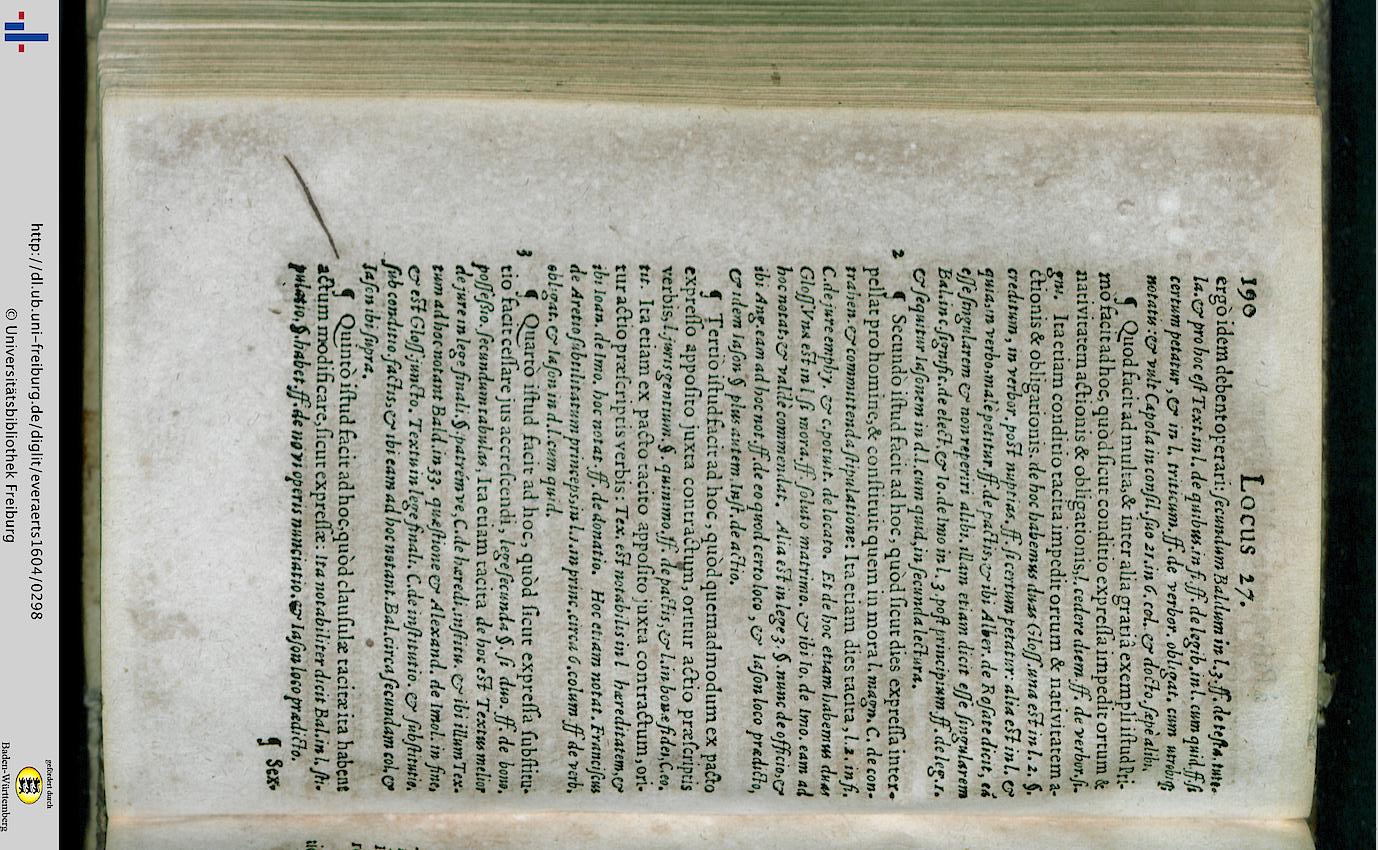 190 Locus 27.
ergò idem debent operari: secundum Baldum in l. 3. ff. de testa. tute-
la. & pro hoc est Text. in l. de quibus. in fi. ff. de legib. in l. cum quid. ff. si
certum petatur, & in l. triticum. ff. de verbor. obligat. cum utrobiq;
notatis: & vult Capola in consil. suo 21. in 6. col. & docto. sæpe alibi.
¶ Quod facit ad multa: & inter alia gratia exempli istud Pri-
mò facit ad hoc, quod sicut conditio expressa impedit ortum &
nativitatem actionis & obligationis, l. cedere diem. ff. de verbor. si-
gni. Ita etiam conditio tacita impedit ortum & nativitatem a-
ctionis & obligationis. de hoc habemus duas Gloss. una est in l. 2. §.
creditum, in verbor. post nuptias. ff. si certum petatur: alia est in l. &
quia. in verbo. malè petitur. ff. de pactis, & ib. Alber. de Rosate dicit, eā
esse singularem & non reperiri alibi. illam etiam dicit esse singularem
Bal. in c. signific. de elect. & Io. de imo in l. 3. post principium. ff. de leg. 1.
& sequitur Iasonem in d. l. cum quid. in secunda lectura.
2 ¶ Secundò istud facit ad hoc, quòd sicut dies expressa inter-
pellat pro homine, & constituit quem in mora l. magn. C. de con-
trahen. & committenda stipulatione: Ita etiam dies tacita, l. 2. in fi.
C. de jure emphy. & c. potuit. de locato. Et de hoc etiam habemus duas
Gloss. Vna est in l. si mora. ff. soluto matrimo. & ibi Io. de Imo. eam ad
hoc notat, & valdè commendat. Alia est in lege 3. § nunc de officio, &
ibi Ang. eam ad hoc not. ff. de eo quod certo loco, & Iason loco prædicto,
& idem Iason § plus autem. Inst. de actio.
¶ Tertiò istud facit ad hoc, quòd quemadmodum ex pacto
expresso apposito juxta contractum, oritur actio præscriptis
verbis, l. juris gentium. § quinimmo. ff. de pactis, & l. in bonæ fidei. C. eo.
tit. Ita etiam ex pacto tacito apposito juxta contractum, ori-
tur actio præscriptis verbis: Tex. est notabilis in l hæreditatem, &
ibi Ioan. de Imo. hoc notat. ff. de donatio. Hoc etiam notat. Franciscus
de Aretio subtilitatum princeps. in l. 1. in princ. circa 6. colum. ff de verb.
obligat. & Iason in d. l. cum quid.
3 ¶ Quartò istud facit ad hoc, quòd sicut expressa substitu-
tio facit cessare jus accrescendi, lege secunda §. si duo. ff. de bono.
possessio. secundum tabulas, Ita etiam tacita de hoc est Textus melior
de jure in lege finali. §. patrem ve, C. de hæredi. institu. & ibi illum Tex-
tum ad hoc notant Bald. in 33. quæstione & Alexand. de Imol. in fine,
& est Gloss. juncto. Textu in lege finali. C. de institutio. & substitutio.
sub conditio. factis, & ibi eam ad hoc notant. Bal. circa secundam col. &
Iason ibi supra.
¶ Quintò istud facit ad hoc, quòd clausulæ tacitæ ita habent
actum modificare, sicut expressæ: ita notabiliter dicit Bal. in l. sti-
pulatio, § habet. ff. de novi operis nunciatio. & Iason loco prædicto.
¶ Sex-
http://dl.ub.uni-freiburg.de/diglit/everaerts1604/0298
© Universitätsbibliothek Freiburg
gefördert durch
Baden-Württemberg